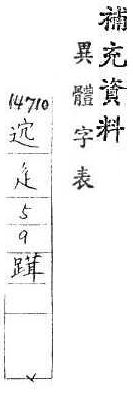 補充資料
異體字表
14710
辵
5
9